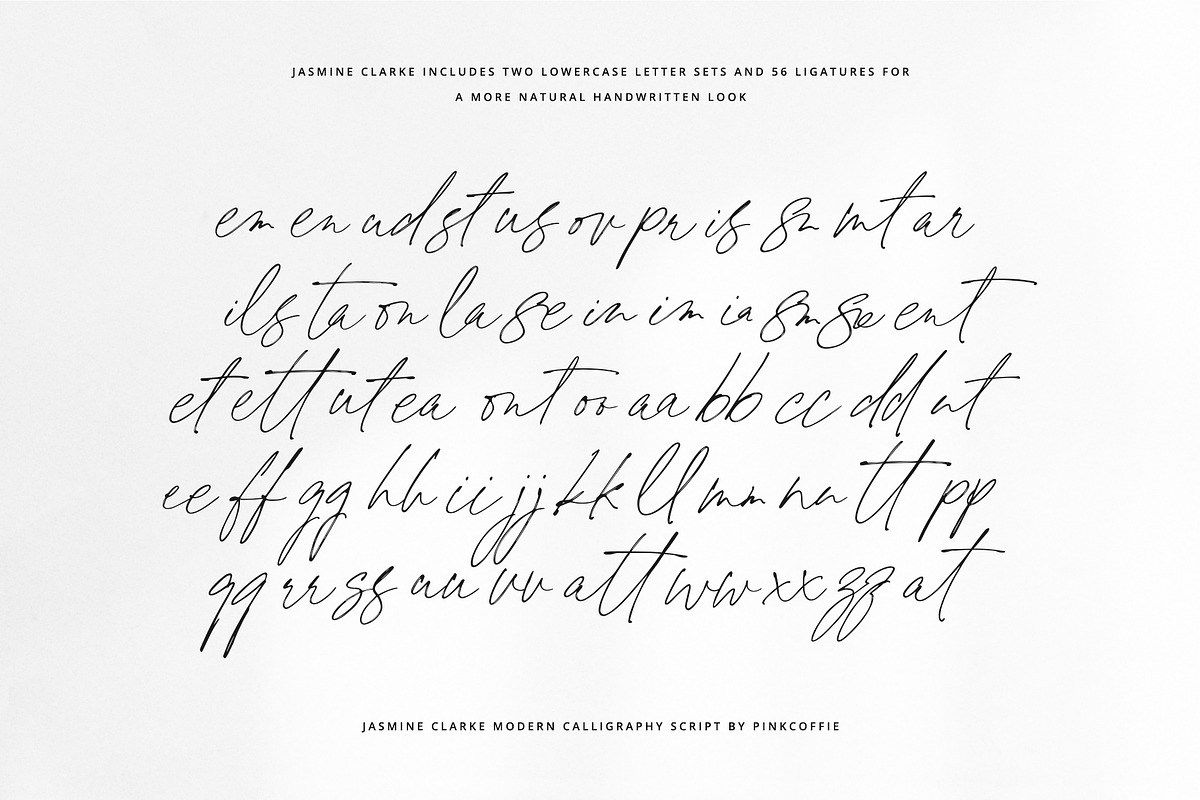 JASMINE CLARKE INCLUDES TWO LOWERCASE LETTER SETS AND 56 LIGATURES FOR
A MORE NATURAL HANDWRITTEN LOOK
em en ud st us ov pr is sn mt ar
ils ta on la se in im ia sm so ent
et ett ut ea ont oo aa bb cc dd nt
ee ff gg hh ii jj kk ll mm nn tt pp
qq rr ss uu vv att ww xx zz at
JASMINE CLARKE MODERN CALLIGRAPHY SCRIPT BY PINKCOFFIE